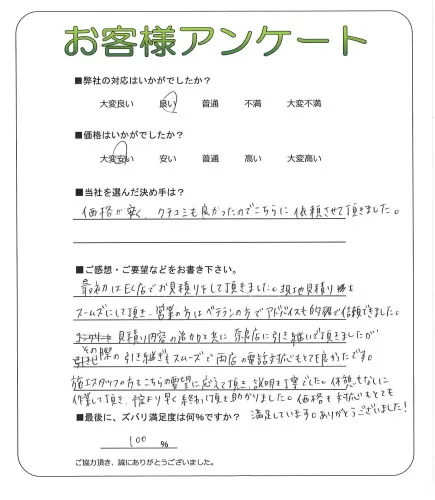 お客様アンケート
■弊社の対応はいかがでしたか？
大変良い 良い 普通 不満 大変不満
■価格はいかがでしたか？
大変安い 安い 普通 高い 大変高い
■当社を選んだ決め手は？
価格が安く、クチコミも良かったのでこちらに依頼させて頂きました。
■ご感想・ご要望などをお書き下さい。
最初はEC店でお見積りをして頂きました。現地見積り時も
スムーズにして頂き、営業の方はベテランの方でアドバイスも的確で信頼できました。
見積り内容の追加と共に奈良店に引き継いで頂きましたが
その際の引き継ぎもスムーズで両店の電話対応もとても良かったです。
施工スタッフの方もこちらの要望に応えて頂き、説明も丁寧でした。休憩もなしに
作業して頂き、予定より早く終わって頂き助かりました。価格も対応もとても
満足しています。ありがとうございました！
■最後に、ズバリ満足度は何%ですか？
100 %
ご協力頂き、誠にありがとうございました。